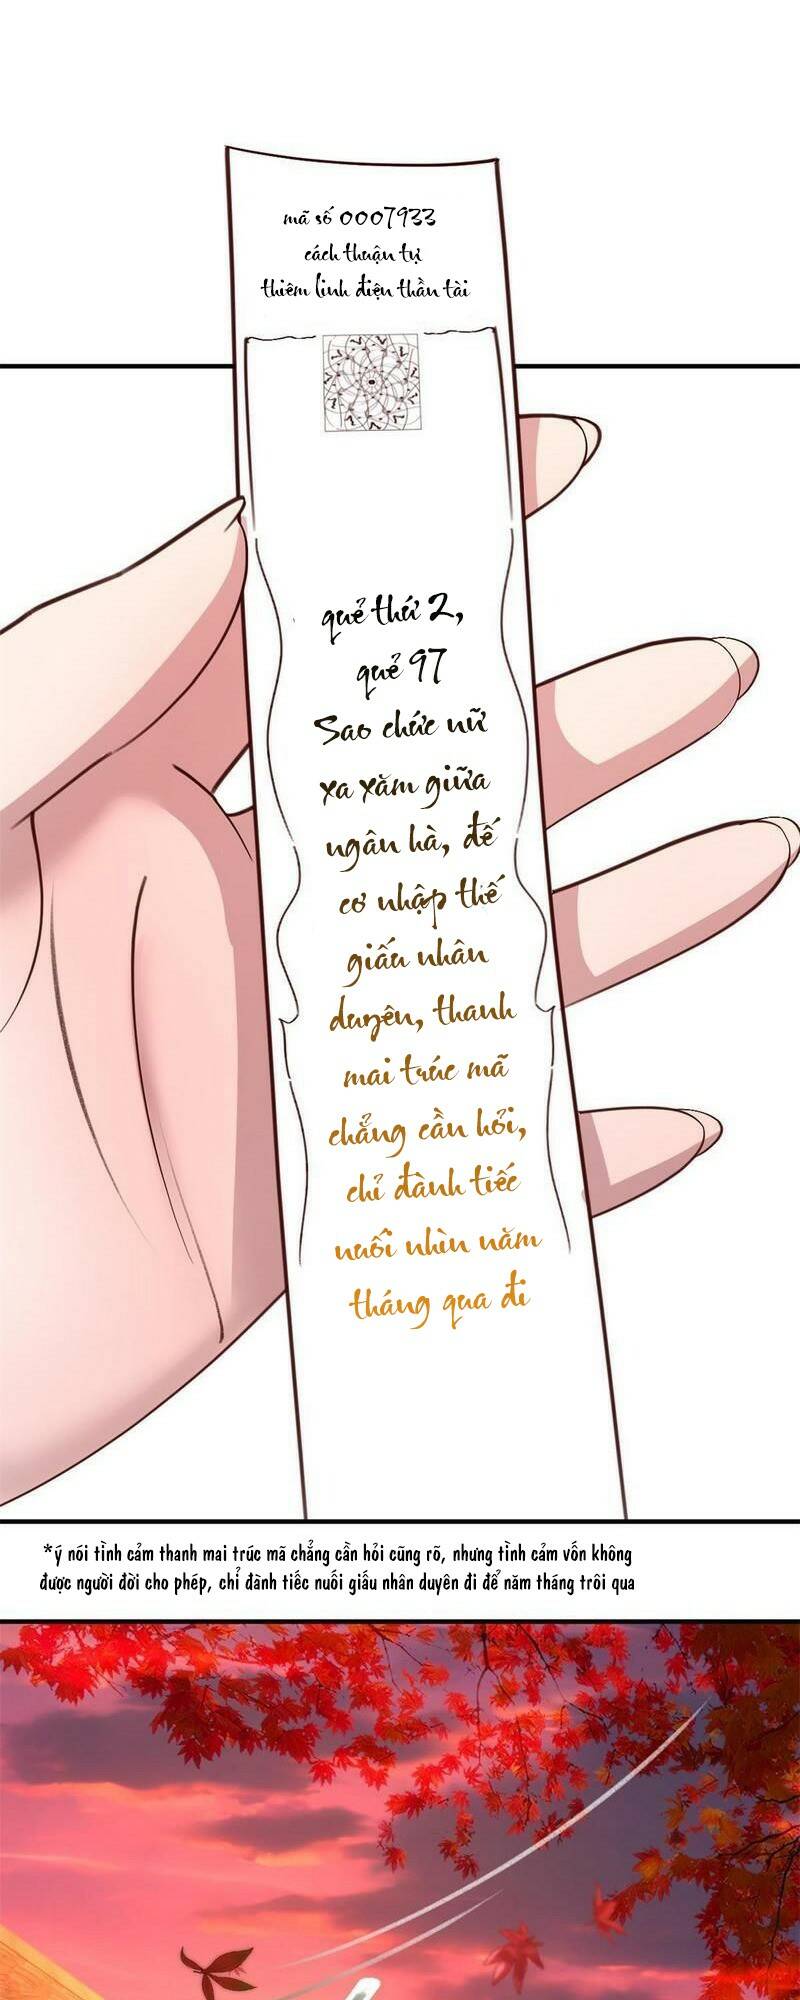 mã số 0007933
cách thuận tự
thiêm linh điện thần tài
quẻ thứ 2,
quẻ 97
Sao chức nữ
xa xăm giữa
ngân hà, đế
cơ nhập thế
giấu nhân
duyên, thanh
mai trúc mã
chẳng cần hỏi,
chỉ đành tiếc
nuối nhìn năm
tháng qua đi
*ý nói tình cảm thanh mai trúc mã chẳng cần hỏi cũng rõ, nhưng tình cảm vốn không
được người đời cho phép, chỉ đành tiếc nuối giấu nhân duyên đi để năm tháng trôi qua